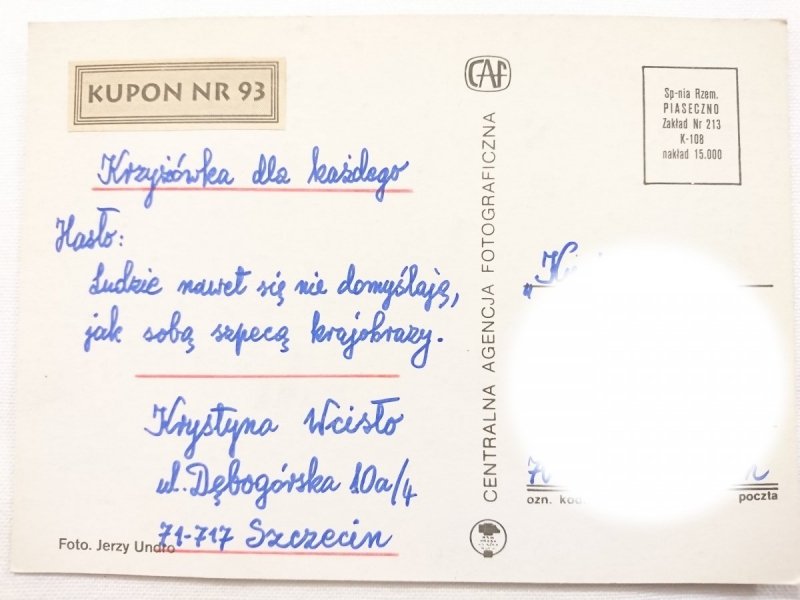 KUPON NR 93
Krzyżówka dla każdego
Hasło:
Ludzie nawet się nie domyślają,
jak sobą szpecą krajobrazy.
Krystyna Wcisło
ul. Dębogórska 10a/4
71-717 Szczecin
Foto. Jerzy Undro
CAF
CENTRALNA AGENCJA FOTOGRAFICZNA
Sp-nia Rzem.
PIASECZNO
Zakład Nr 213
K-108
nakład 15.000
ozn.
poczta